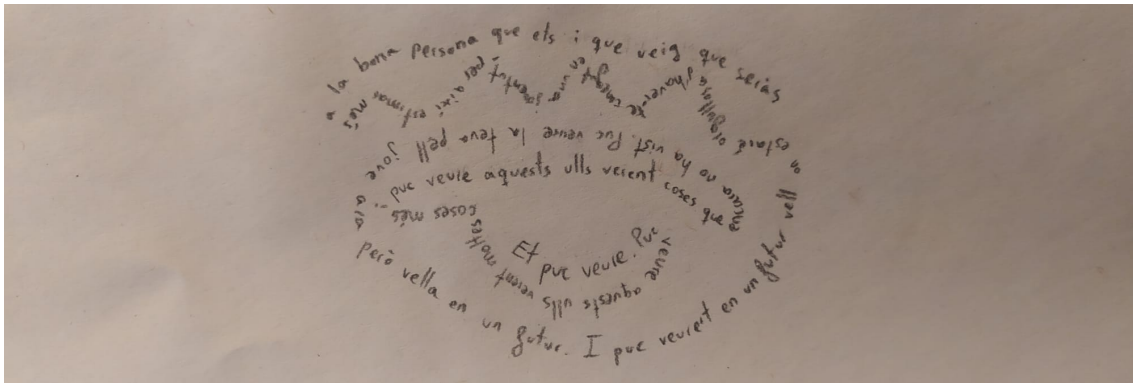 Et puc veure. Puc
veure aquests ulls veient moltes
coses més i
puc veure aquests ulls veient coses que
encara no ha vist. Puc veure la teva pell jove ara
però vella en un futur. I puc veure't en un futur vell
on estaré
orgullosa d'haver-te conegut en una joventut per així estimar més
a la bona persona que ets i que veig que seràs